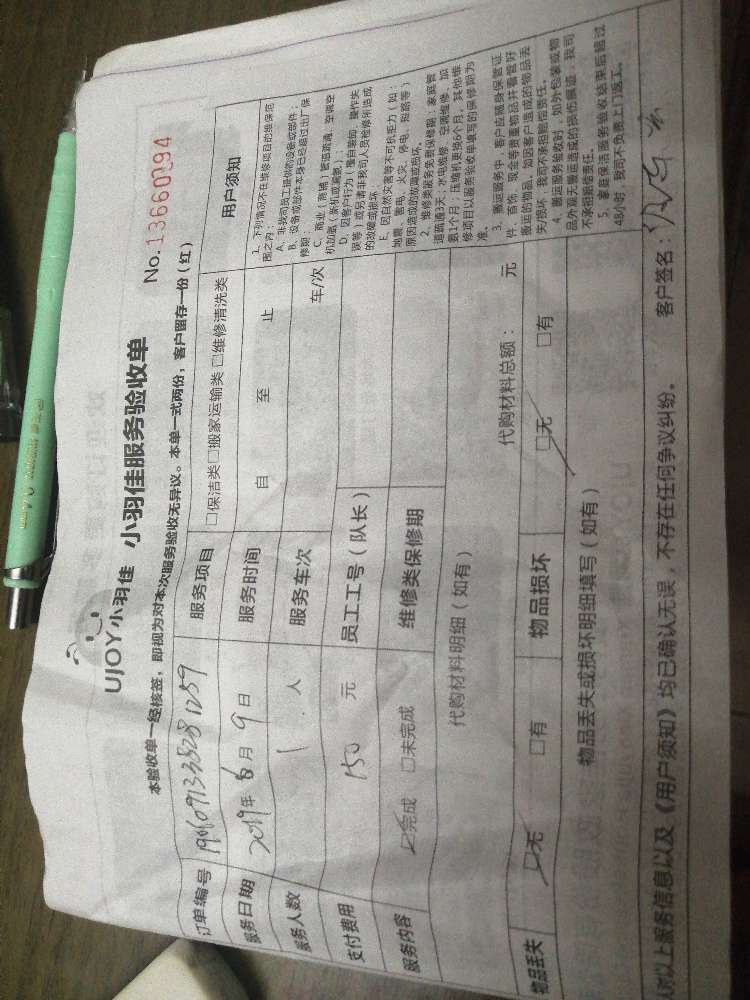 UJOY小羽佳 小羽佳服务验收单
No.13660394
本验收单一经核签，即视为对本次服务验收无异议。本单一式两份，客户留存一份（红）
订单编号
服务项目 □保洁类□搬家运输类□维修清洗类
服务日期 2019年6月9日 服务时间 自 至 止
服务人数 1 人 服务车次 车/次
支付费用 150 元 员工工号（队长）
服务内容 ☑完成 □未完成 维修类保修期
代购材料明细（如有） 代购材料总额： 元
物品丢失 ☑无 □有 物品损坏 ☑无 □有
物品丢失或损坏明细填写（如有）
用户须知
1、下列情况不在维修项目的维保范
围之内：
A、非我司员工提供的设备或部件；
B、设备或部件本身已经超过出厂保
修期；
C、商业（商铺）管道疏通、空调空
D、因客户行为（擅自装卸、操作失
误等）或另请非我司人员检修所造成
的故障或损坏；
E、因自然灾害等不可抗拒力（如：
地震、雷电、火灾、停电、短路等）
原因造成的故障或损坏。
2、维修类服务免费保修期：家庭管
道疏通3天；水电维修、空调维修、加
氨1个月；压缩机更换6个月，其他维
修项目以服务验收单填写的保修期为
准。
3、搬运服务中，客户应随身保管证
件、首饰、现金等贵重物品并看管好
搬运的物品，如因客户造成的物品丢
失损坏，我司不承担赔偿责任。
4、搬运服务验收时，如外包装或物
品外观无搬运造成的损伤痕迹，我司
不承担赔偿责任。
5、家庭保洁服务验收结束后超过
48小时，我司不负责上门返工。
对以上服务信息以及《用户须知》均已确认无误，不存在任何争议纠纷。 客户签名：